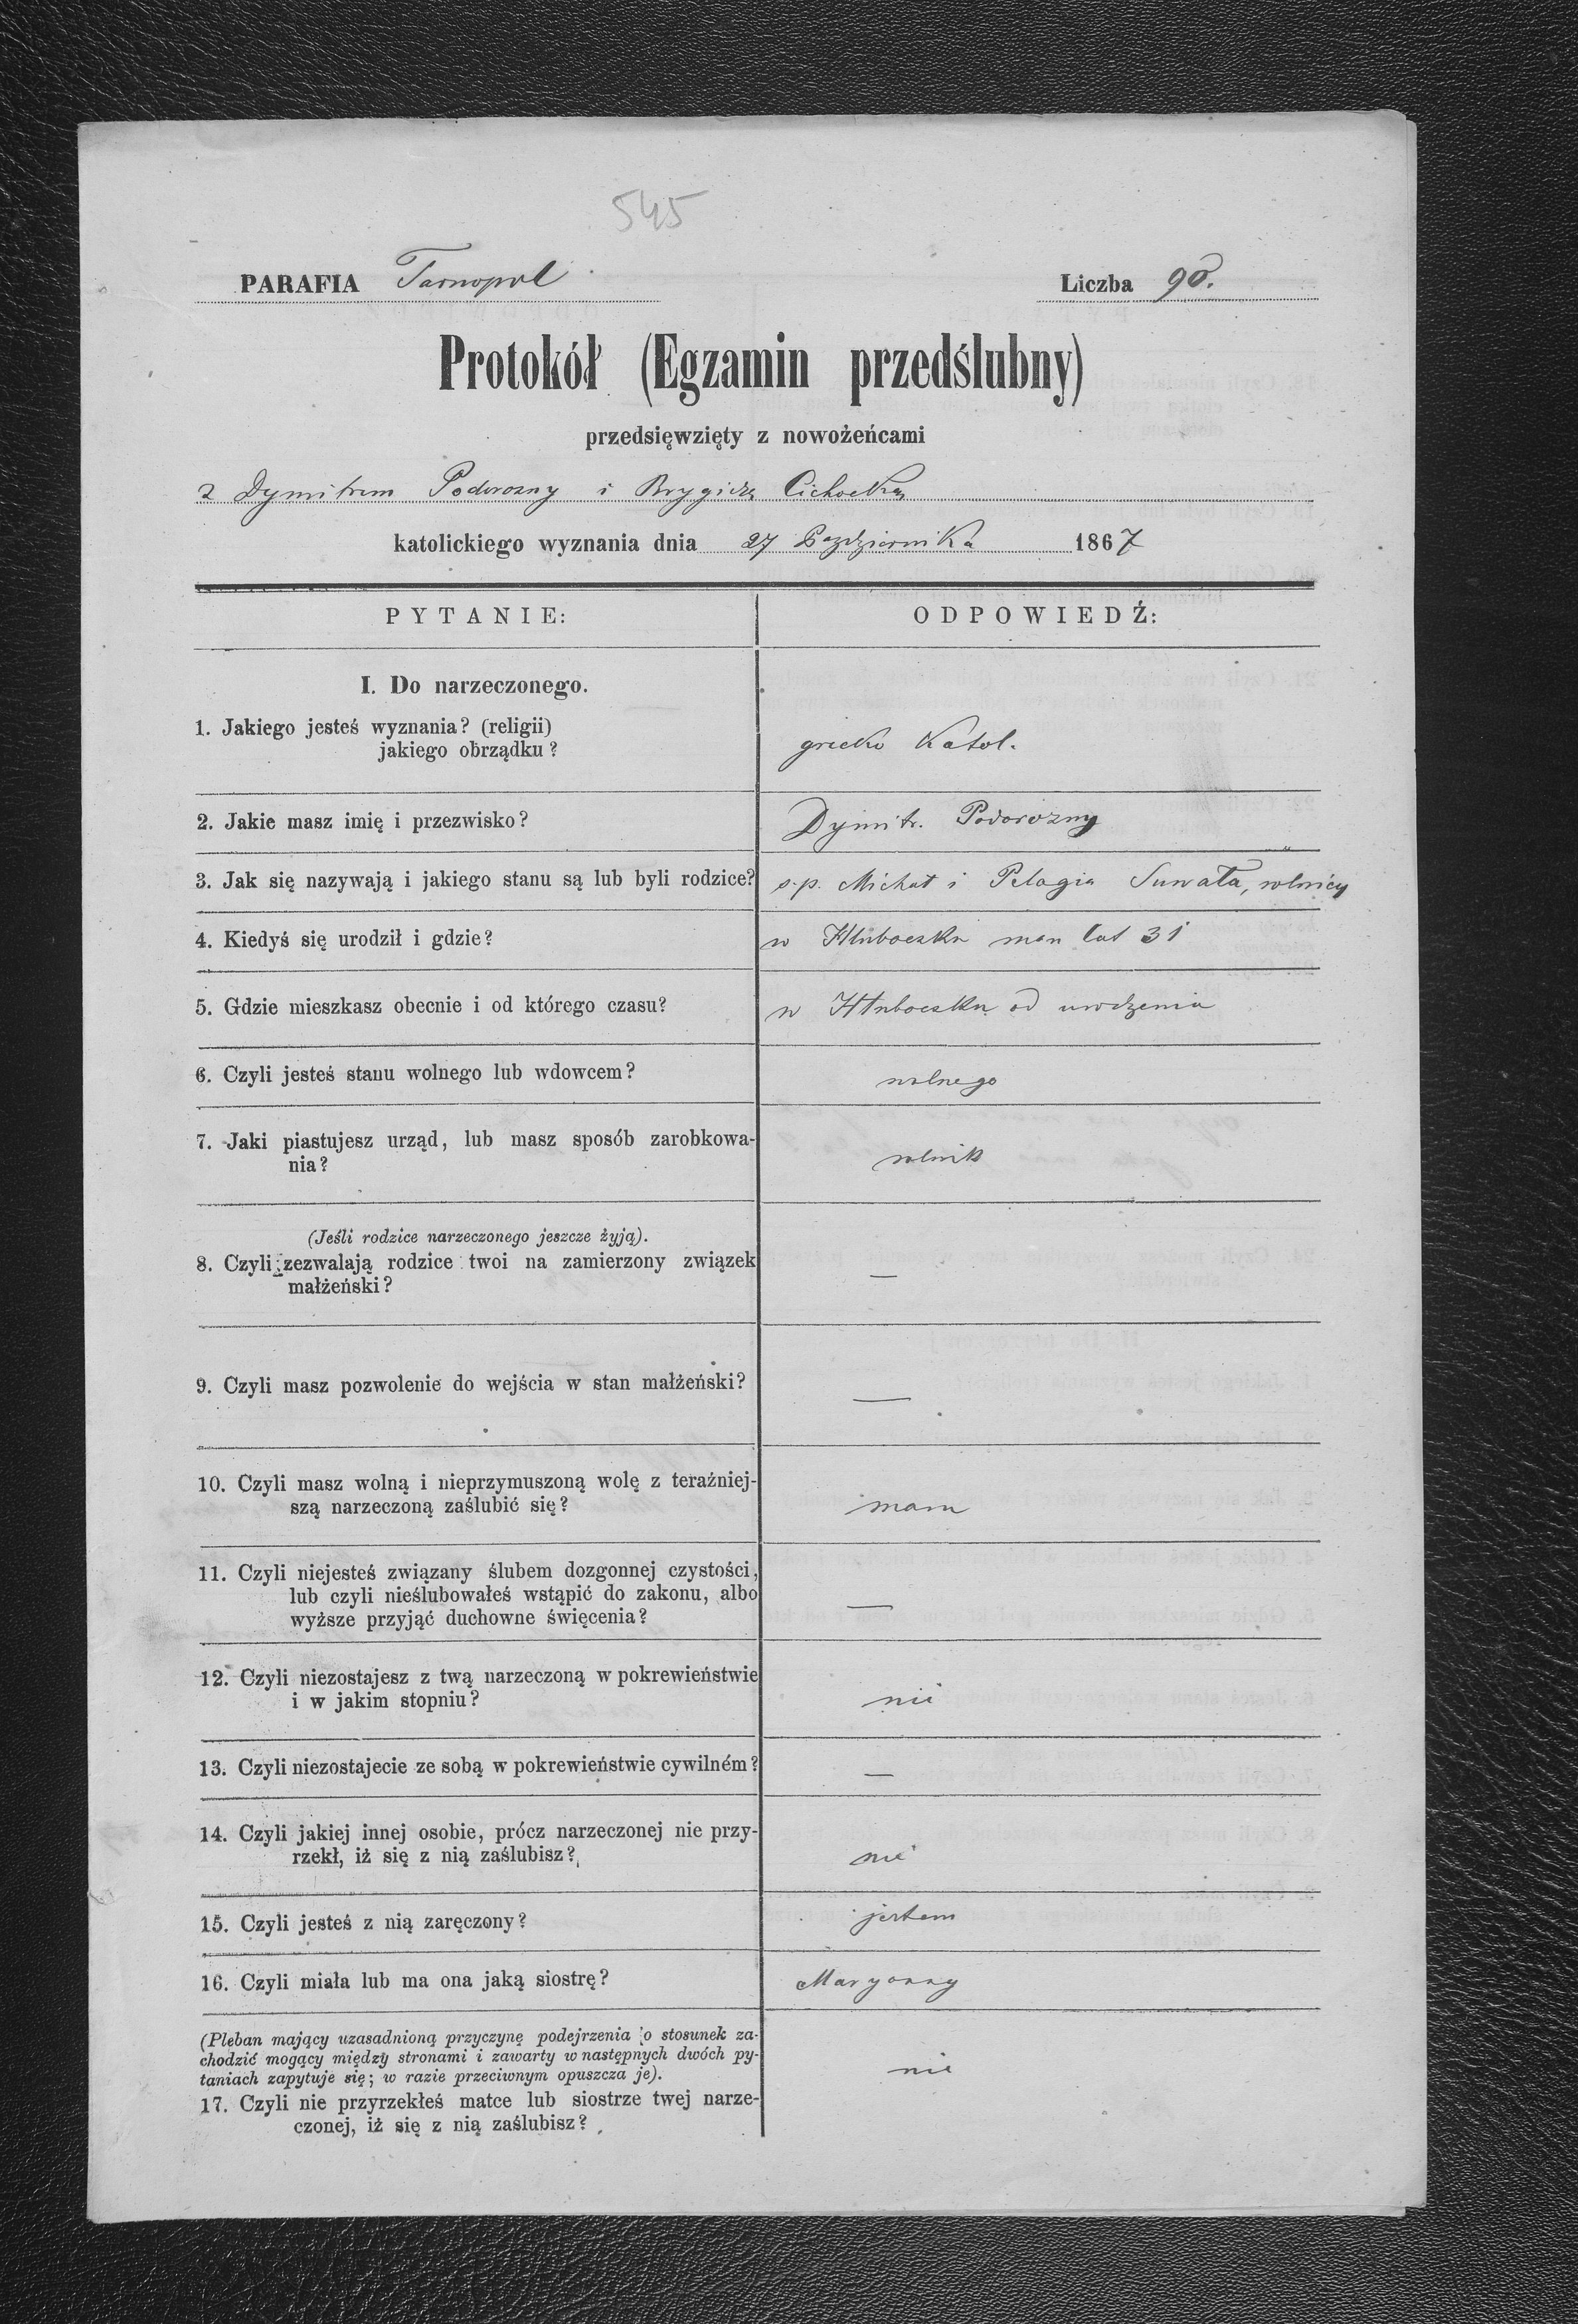 545
PARAFIA Tarnopol
Liczba 90.
Protokół (Egzamin przedślubny)
przedsięwzięty z nowożeńcami
z Dymitrem Podorozny i Brygidą Cichocką
katolickiego wyznania dnia 27 Pazdziernika 1867
PYTANIE:
ODPOWIEDŹ:
I. Do narzeczonego.
1. Jakiego jesteś wyznania? (religii)
jakiego obrządku?
grecko Katol.
2. Jakie masz imię i przezwisko?
Dymitr. Podorozny
3. Jak się nazywają i jakiego stanu są lub byli rodzice?
s.p. Michał i Pelagia Suwała, rolnicy
4. Kiedyś się urodził i gdzie?
w Hłuboczku mam lat 31
5. Gdzie mieszkasz obecnie i od którego czasu?
w Hłuboczku od urodzenia
6. Czyli jesteś stanu wolnego lub wdowcem?
wolnego
7. Jaki piastujesz urząd, lub masz sposób zarobkowa-
nia?
rolnik
(Jeśli rodzice narzeczonego jeszcze żyją).
8. Czyli zezwalają rodzice twoi na zamierzony związek
małżeński?
—
9. Czyli masz pozwolenie do wejścia w stan małżeński?
—
10. Czyli masz wolną i nieprzymuszoną wolę z teraźniej-
szą narzeczoną zaślubić się?
mam
11. Czyli niejesteś związany ślubem dozgonnej czystości,
lub czyli nieślubowałeś wstąpić do zakonu, albo
wyższe przyjąć duchowne święcenia?
—
12. Czyli niezostajesz z twą narzeczoną w pokrewieństwie
i w jakim stopniu?
nie
13. Czyli niezostajecie ze sobą w pokrewieństwie cywilném?
—
14. Czyli jakiej innej osobie, prócz narzeczonej nie przy-
rzekł, iż się z nią zaślubisz?
nie
15. Czyli jesteś z nią zaręczony?
jestem
16. Czyli miała lub ma ona jaką siostrę?
Maryanny
(Pleban mający uzasadnioną przyczynę podejrzenia o stosunek za-
chodzić mogący między stronami i zawarty w następnych dwóch py-
taniach zapytuje się; w razie przeciwnym opuszcza je).
17. Czyli nie przyrzekłeś matce lub siostrze twej narze-
czonej, iż się z nią zaślubisz?
nie